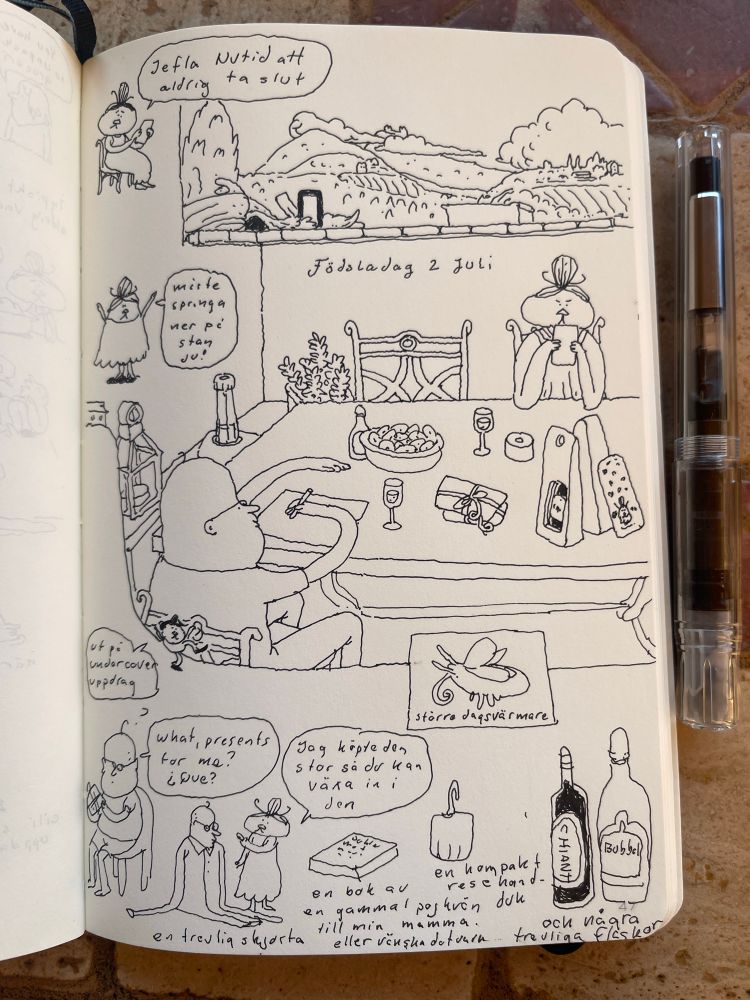 Jefla Nutid att
aldrig ta slut
Födsladag 2 Juli
måste
springa
ner på
stan
Ju!
ut på
undercover
uppdrag
större dagsvärmare
?
what, presents
for me?
¿Que?
Jag köpte den
stor så du kan
växa in i
den
en trevlig skjorta
en bok av
en gammal pojkvän
till min mamma.
eller vänska
en kompakt
resehand-
duk
CHIANTI
Bubbel
47
och några
trevliga flaskor